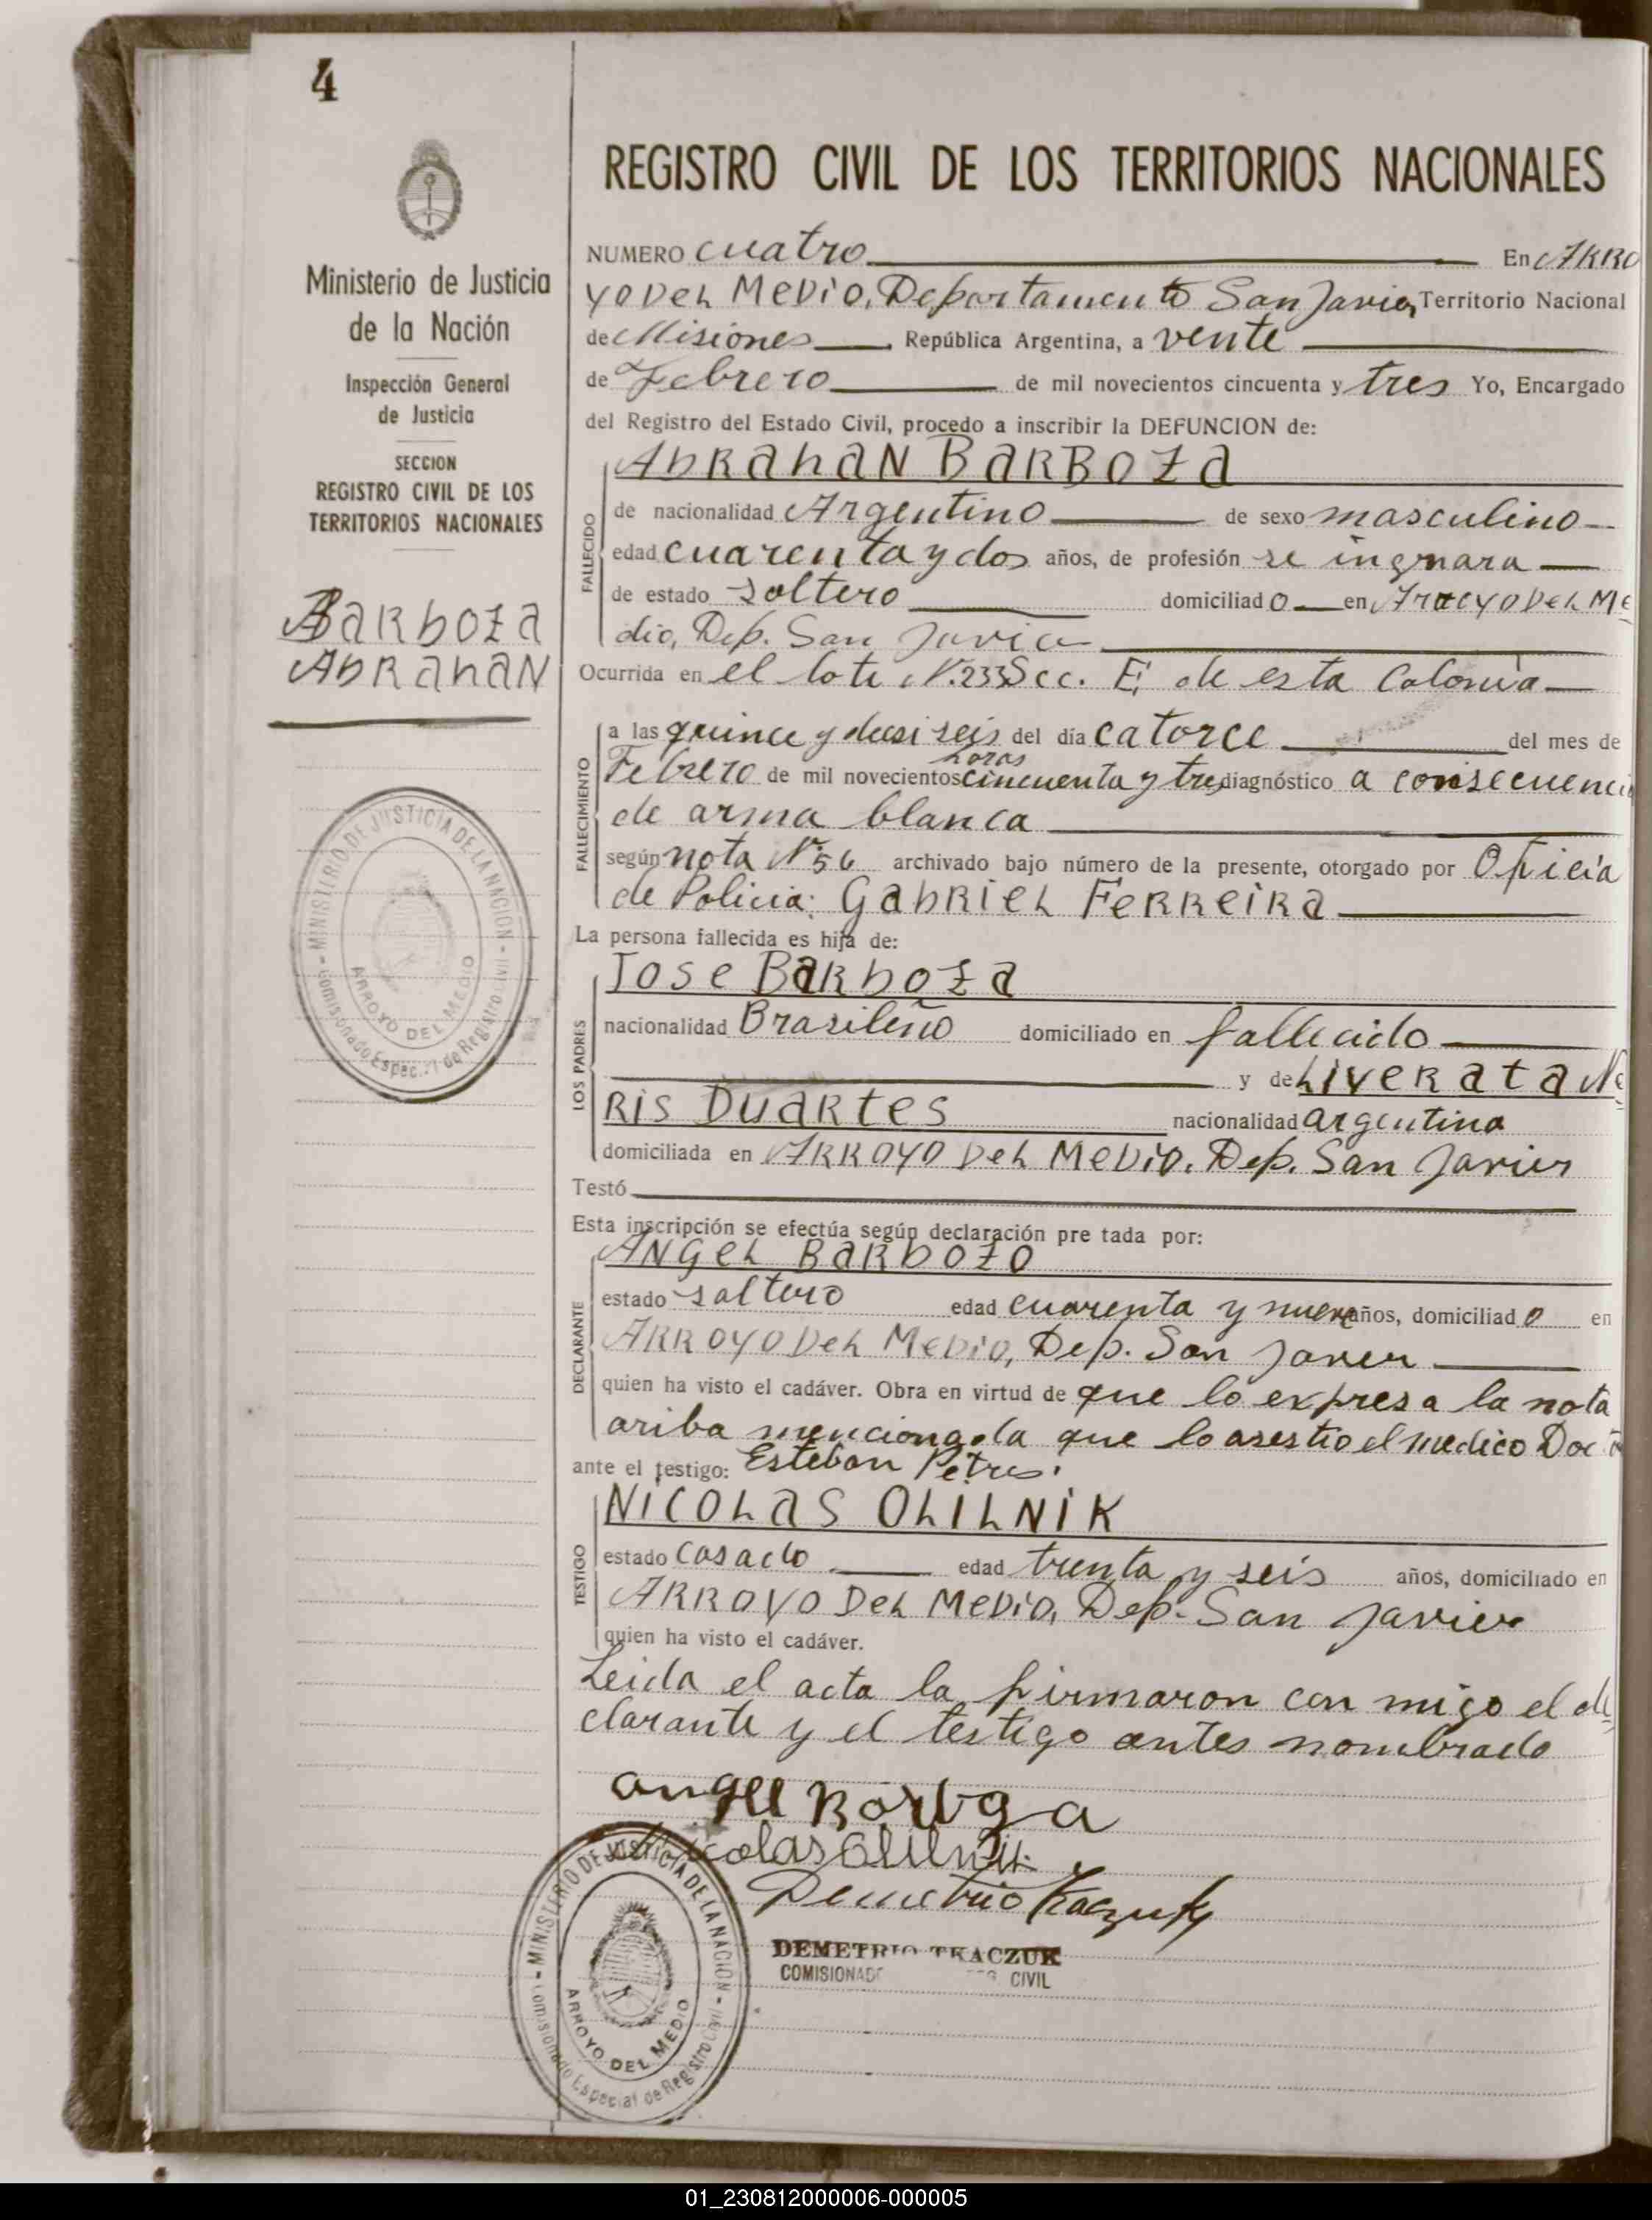 4
Ministerio de Justicia
de la Nación
Inspección General
de Justicia
SECCION
REGISTRO CIVIL DE LOS
TERRITORIOS NACIONALES
Barboza
Abrahan
MINISTERIO DE JUSTICIA DE LA NACION
ARROYO DEL MEDIO
Comisionado Especial de Registro Civil
REGISTRO CIVIL DE LOS TERRITORIOS NACIONALES
NUMERO cuatro En Arro
yo del Medio, Departamento San Javier, Territorio Nacional
de Misiones República Argentina, a vente
de Febrero de mil novecientos cincuenta y tres Yo, Encargado
del Registro del Estado Civil, procedo a inscribir la DEFUNCION de:
Abrahan Barboza
FALLECIDO
de nacionalidad Argentino de sexo masculino
edad cuarenta y dos años, de profesión se ingnara
de estado soltero domiciliado en Arroyo del Me
dio, Dep. San Javier
Ocurrida en el lote N. 233 Sec. E. de esta Colonia
FALLECIMIENTO
a las quince y diesi seis del día catorce del mes de
horas
Febrero de mil novecientos cincuenta y tres diagnóstico a consecuencia
de arma blanca
según nota N° 56 archivado bajo número de la presente, otorgado por Oficia
de Policia: Gabriel Ferreira
La persona fallecida es hija de:
LOS PADRES
Jose Barboza
nacionalidad Brasileño domiciliado en fallecido
y de Liverata Ne
ris Duartes nacionalidad argentina
domiciliada en Arroyo del Medio, Dep. San Javier
Testó
Esta inscripción se efectúa según declaración pre tada por:
DECLARANTE
Angel Barbozo
estado soltero edad cuarenta y nueve años, domiciliado en
Arroyo del Medio, Dep. San Javier
quien ha visto el cadáver. Obra en virtud de que lo expresa la nota
ariba mencionada que lo asestio el medico Doctor
ante el testigo: Esteban Petres.
TESTIGO
Nicolas Olilnik
estado casado edad trenta y seis años, domiciliado en
Arroyo del Medio, Dep. San Javier
quien ha visto el cadáver.
Leida el acta la firmaron con migo el de
clarante y el testigo antes nombrado
Nicolas Olilnik
Demetrio Tkaczuk
DEMETRIO TKACZUK
COMISIONADO REG. CIVIL
MINISTERIO DE JUSTICIA DE LA NACION
ARROYO DEL MEDIO
Comisionado Especial de Registro Civil
01_230812000006-000005